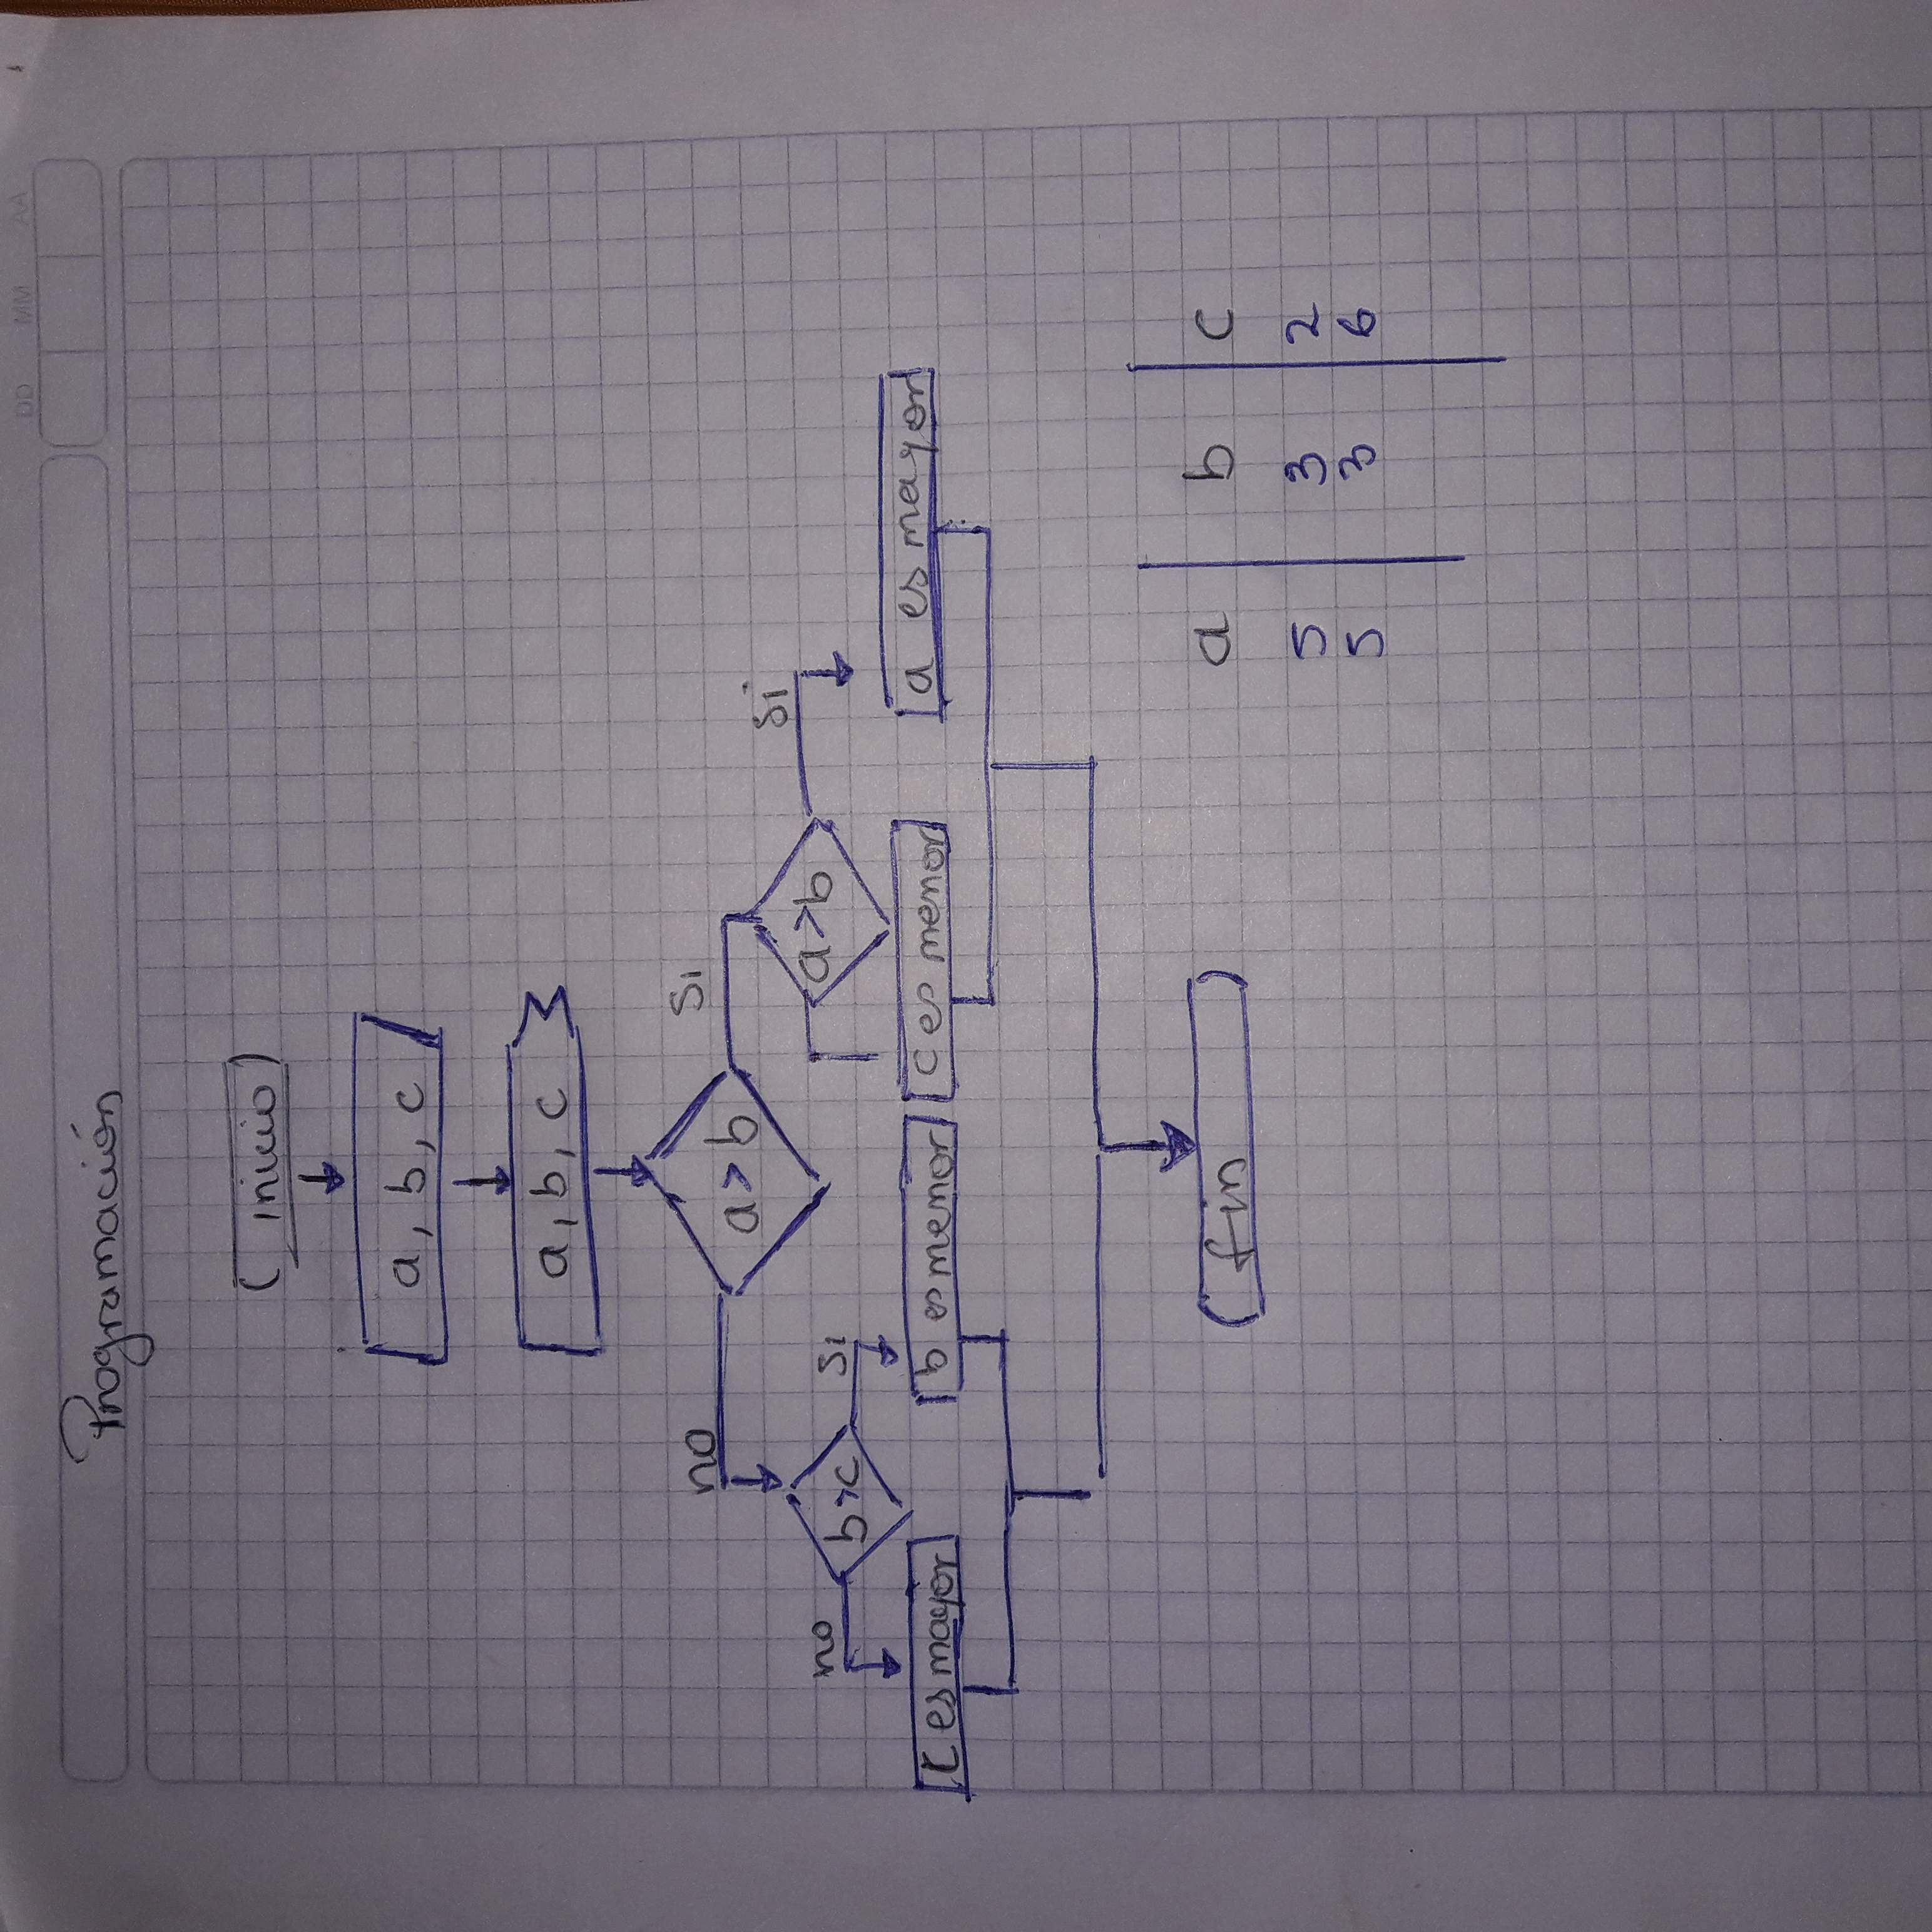 DD MM AA
Programación
inicio
a, b, c
a, b, c
no
si
a > b
si
no
si
a > b
b > c
c es mayor
b es menor
c es menor
a es mayor
fin
a b c
5 3 2
5 3 6